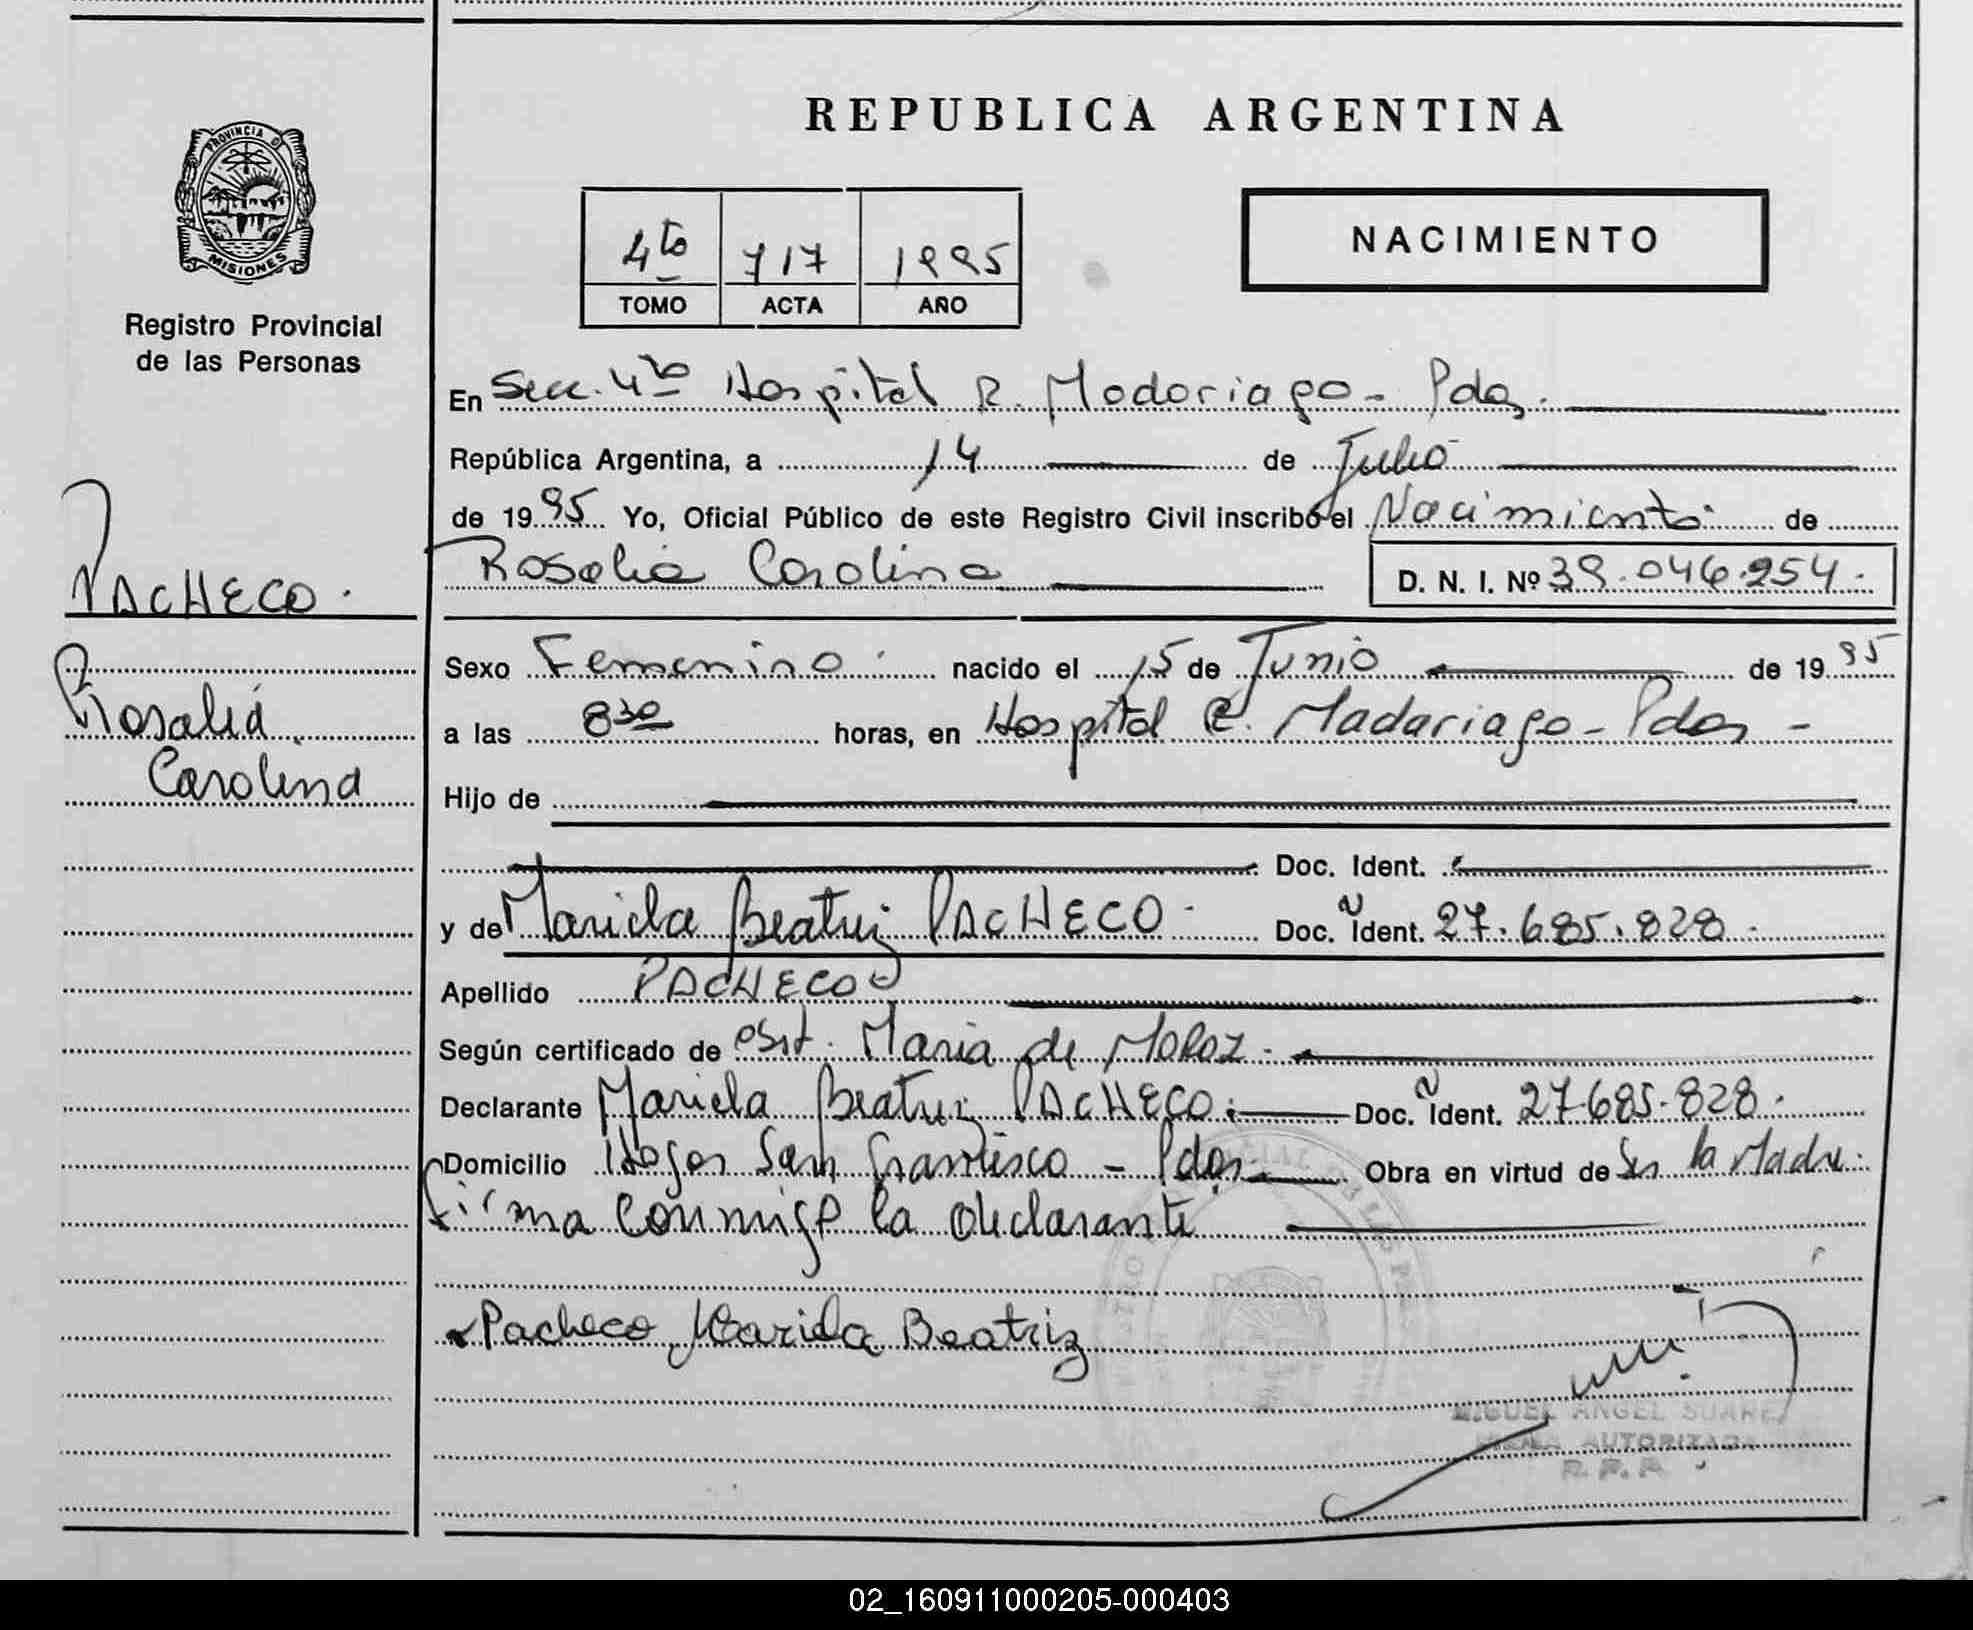 REPUBLICA ARGENTINA
PROVINCIA DE
MISIONES
Registro Provincial
de las Personas
4to 717 1995
TOMO ACTA AÑO
NACIMIENTO
En Secc. 4to Hospital R. Madariaga - Pdas.
República Argentina, a 14 de Julio
de 1995 Yo, Oficial Público de este Registro Civil inscribo el Nacimiento de
Rosalia Carolina D. N. I. Nº 39.046.254.
PACHECO.
Rosalia
Carolina
Sexo Femenino nacido el 15 de Junio de 1995
a las 8 30 horas, en Hospital R. Madariaga - Pdas -
Hijo de
Doc. Ident.
y de Mariela Beatriz PACHECO - Doc. Ident. 27.685.828.
Apellido PACHECO
Según certificado de Obst. Maria de Moroz.
Declarante Mariela Beatriz PACHECO. Doc. Ident. 27.685.828.
Domicilio Hogar San Francisco - Pdas. Obra en virtud de Ser la Madre.
firma conmigo la declarante
Pacheco Mariela Beatriz
MIGUEL ANGEL SUAREZ
FIRMA AUTORIZADA
R. P. P.
02_160911000205-000403